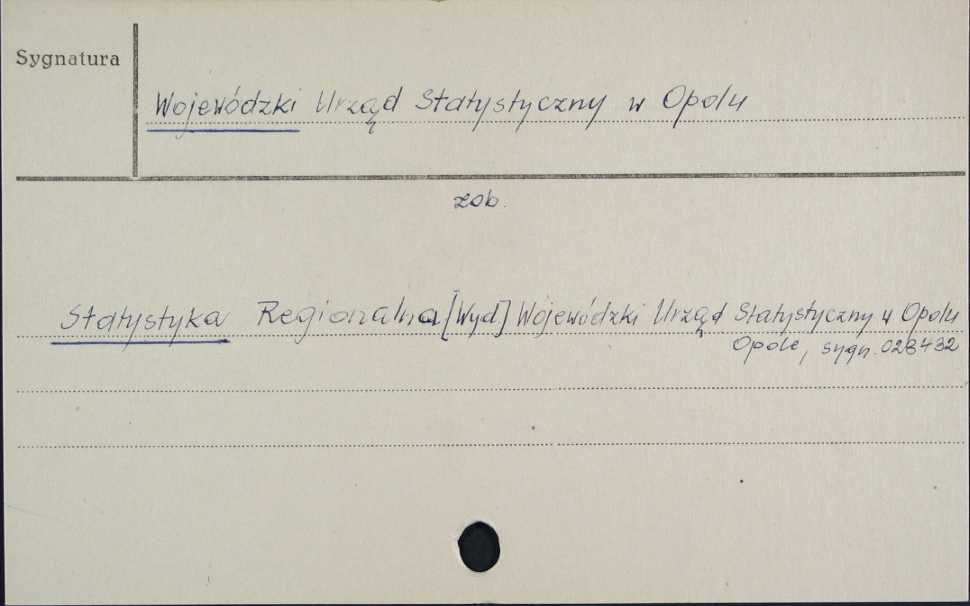 Sygnatura
Wojewódzki Urząd Statystyczny w Opolu
zob.
Statystyka Regionalna [Wyd] Wojewódzki Urząd Statystyczny w Opolu
Opole, sygn. 028432